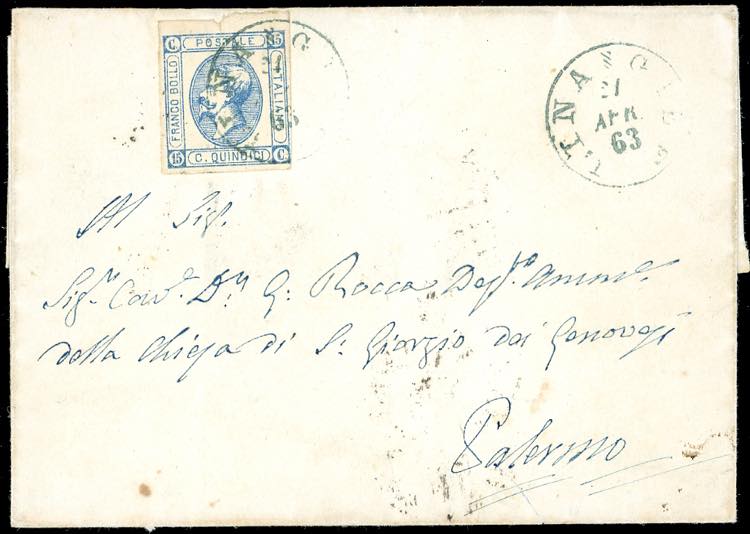 C. POSTALE 15
FRANCO BOLLO
ITALIANO
15 C. QUINDICI C.
21
APR.
63
Al Sig.
Sig.r Cav.r D.n G: Rocca Dep.o
della Chiesa di S. Giorgio dei Genovesi
Palermo